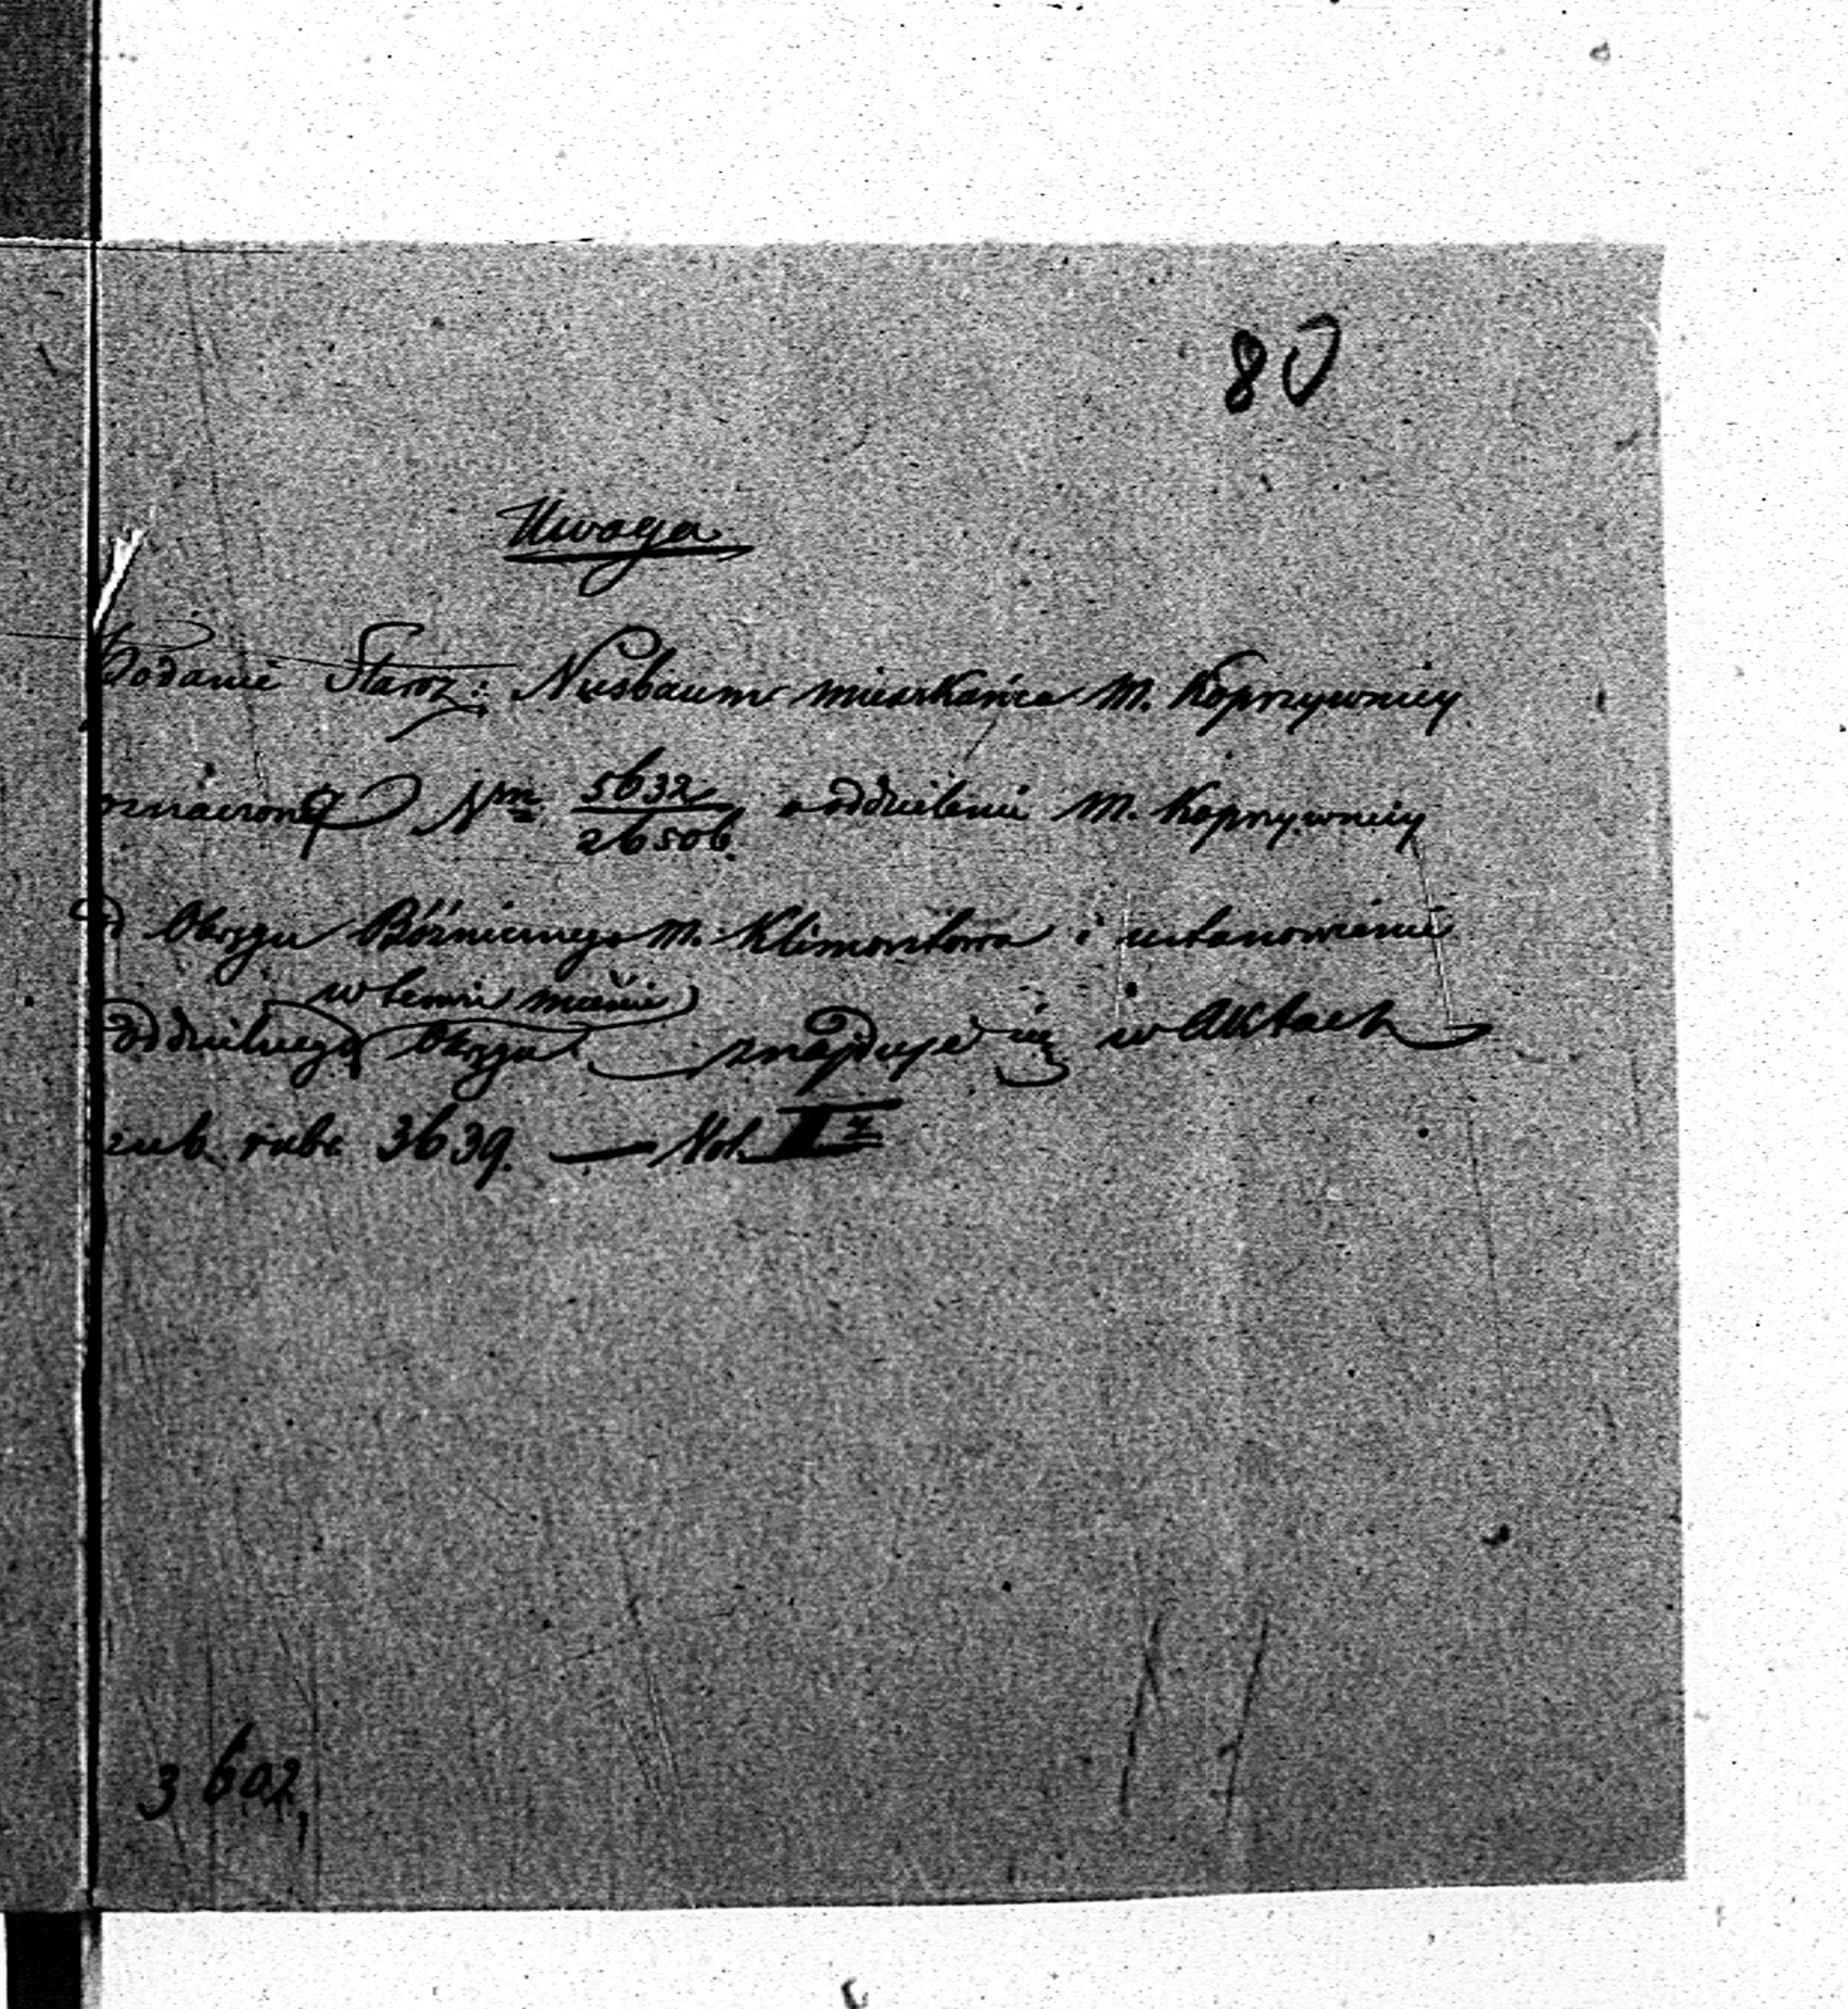 80
Uwaga
Podanie Staroz: Nusbaum mieszkańca M. Koprzywnicy
oznaczone Nrm 5632/26506. o oddzielenie M. Koprzywnicy
od Okręgu Bóżnicznego M. Klimontowa i ustanowienie
w temże mieście
oddzielnego Okręgu znajduje się w Aktach
sub rubr 3639. — Vol. II
3602,